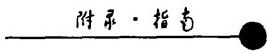 附录·指南